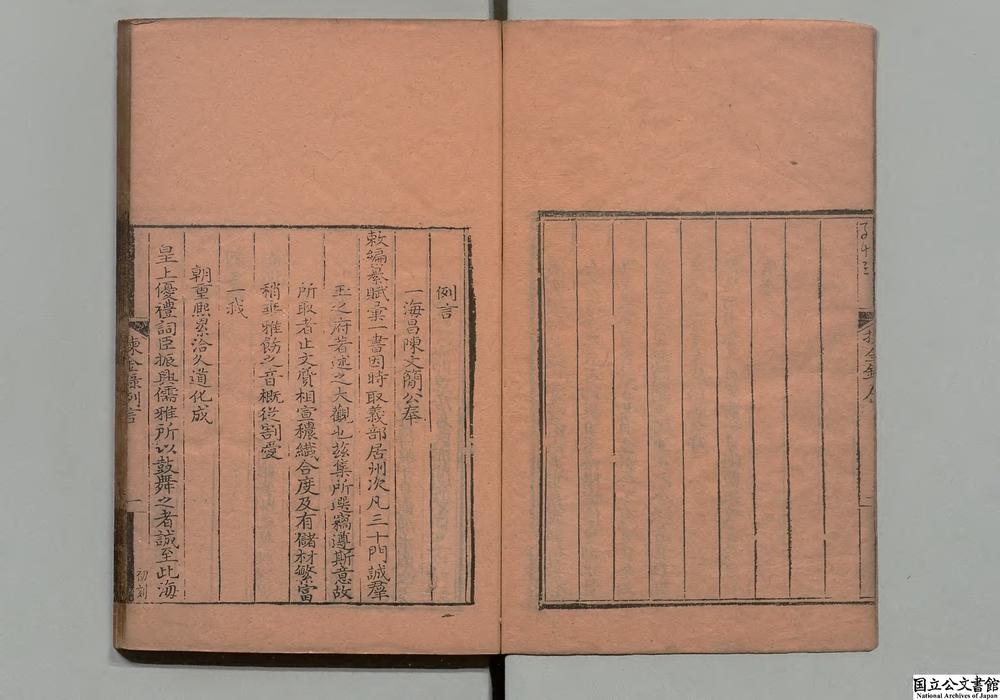 例言
一海昌陳文簡公奉
敕編纂賦彙一書因時取義部居州次凡三十門誠羣
玉之府著述之大觀也茲集所選竊遵斯意故
所取者止文質相宣穠纖合度及有儲材繁富
稍乖雅飭之音概從割愛
一我
朝重熙累洽久道化成
皇上優禮詞臣振興儒雅所以鼓舞之者誠至此海
揀金錄例言
一
初刻
国立公文書館
National Archives of Japan